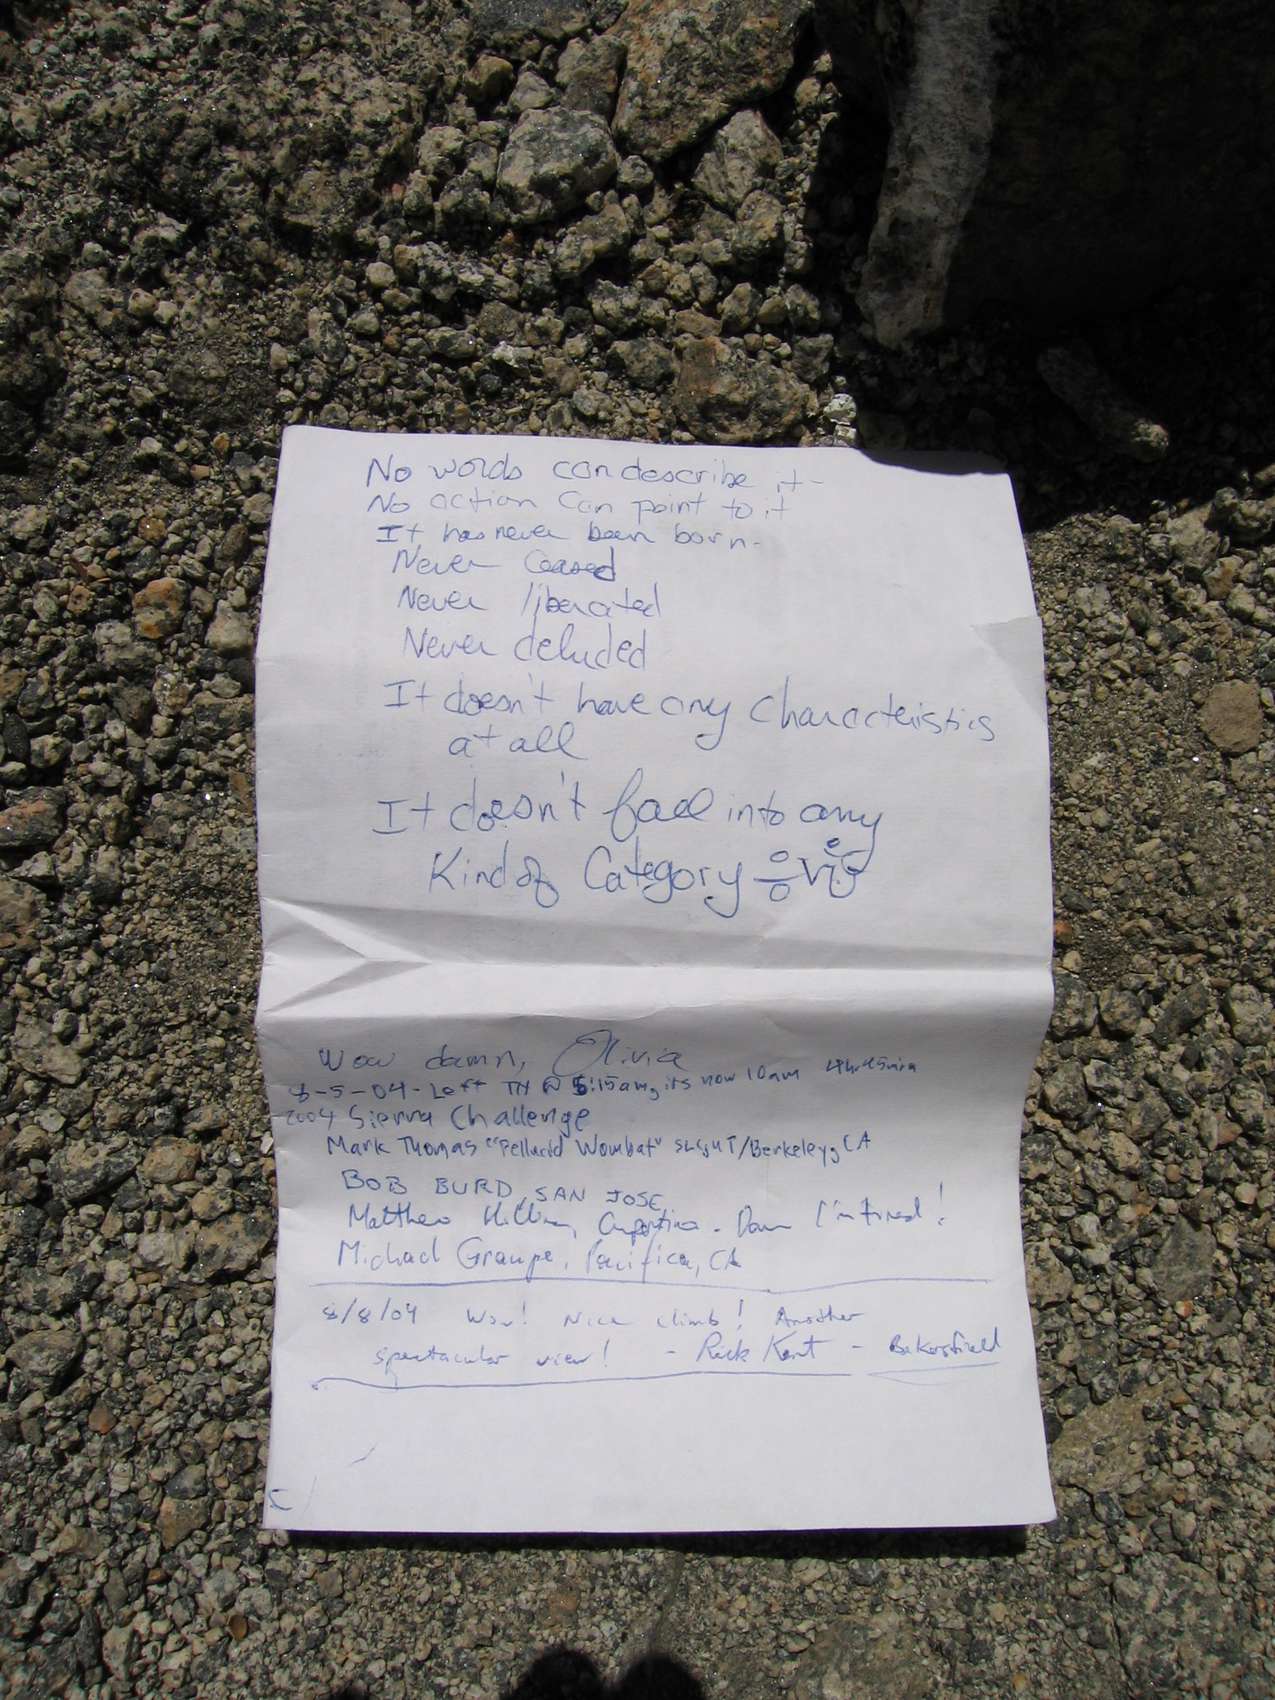 No words can describe it -
No action can point to it
It has never been born -
Never Ceased
Never liberated
Never deluded
It doesn't have any characteristics
at all
It doesn't fall into any
Kind of Category
Wow damn, Olivia
8-5-04 - Left TH @ 5:15am, its now 10am 4hr45min
2004 Sierra Challenge
Mark Thomas "Pellucid Wombat" /Berkeley, CA
BOB BURD, SAN JOSE
Matthew Cupertino - Damn I'm tired!
Michael Graupe, Pacifica, CA
8/8/04 Wow! Nice climb! Another
spectacular view! - Rick Kent - Bakersfield